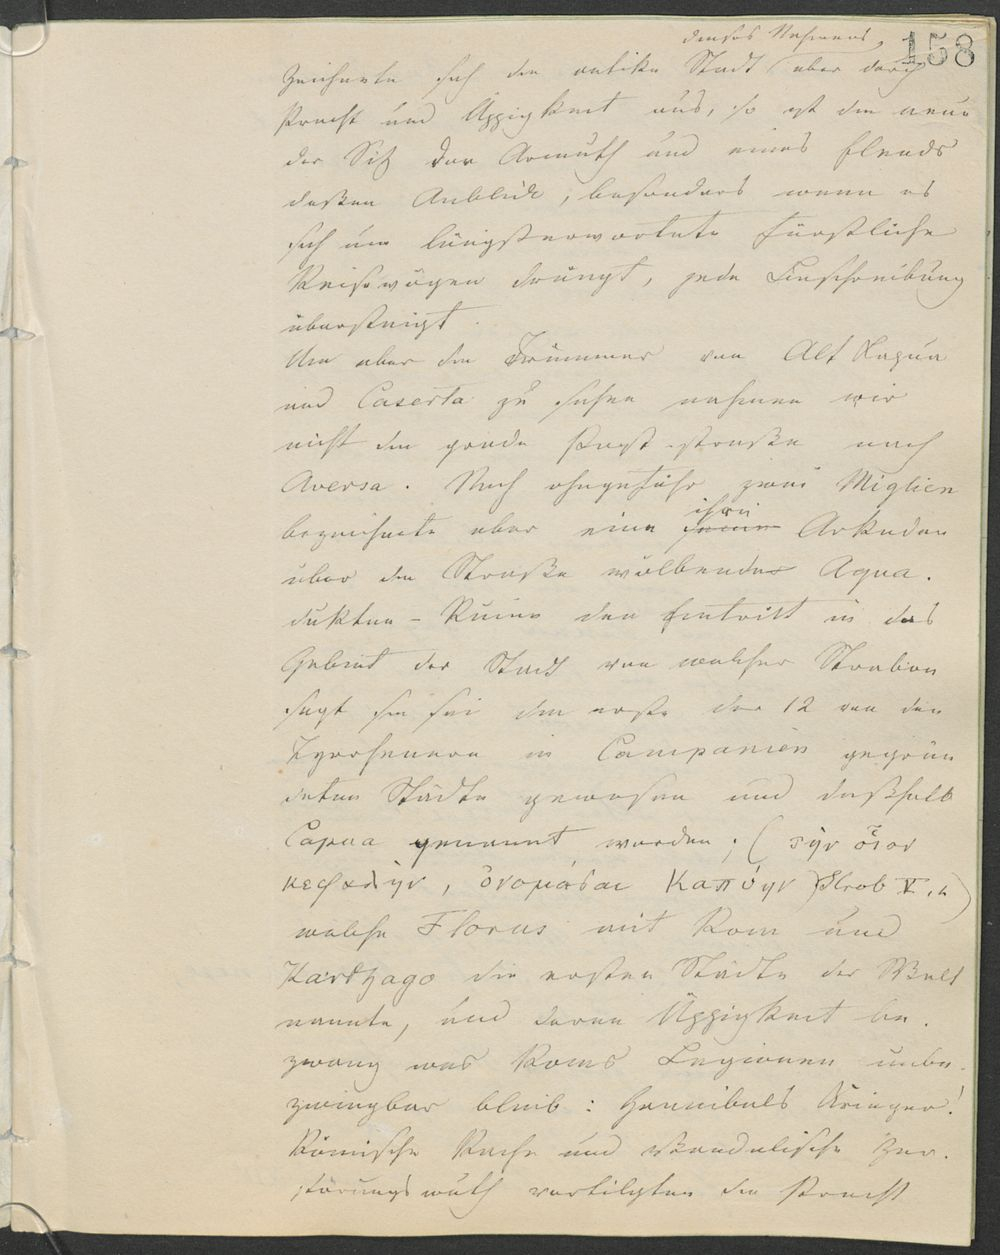 158
dieses Nahmens,
Zeichnete sich die antike Stadt aber durch
Pracht und Üppigkeit aus, so ist die neue
der Sitz der Armuth und eines Elends
deßen Anblick, besonders wenn es
sich um längsterwartete fürstliche
Reisewägen drängt, jede Beschreibung
übersteigt.
Um aber die Trümmer von Alt Kapua
und Caserta zu sehen nahmen wir
nicht die grade Poststraße nach
Aversa. Nach ohngefähr zwei Miglien
bezeichnete aber eine ihre Arkaden
über die Straße wölbende Aqua.
dukten-Ruine den Eintritt in das
Gebiet der Stadt von welcher Strabon
sagt sie sei die erste der 12 von den
Tyrrhenern in Campanien gegrün
deten Städte gewesen und deßhalb
Capua genannt worden; (τὴν οἷον
κεφαλὴν, ὀνομάσαι Καπύην Strab V. 4)
welche Florus mit Rom und
Karthago die ersten Städte der Welt
nannte, und deren Üppigkeit be.
zwang was Roms Legionen unbe.
zwingbar blieb: Hannibals Krieger!
Römische Rache und vandalische Zer.
störungswuth vertilgten die Pracht